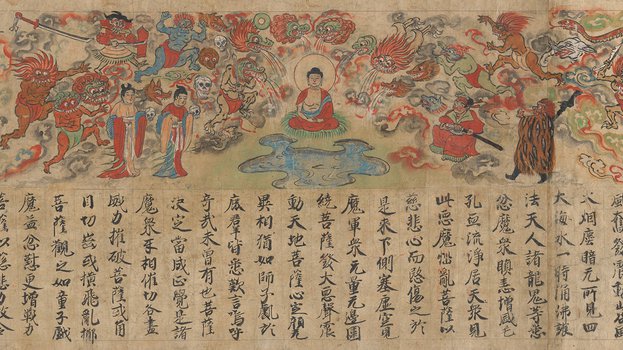 火烟塵暗无所見四
大海水一時涌沸護
法天人諸龍鬼等悉
忿魔衆瞋恚增盛毛
孔血流淨居天衆見
此惡魔惱亂菩薩以
慈悲心而愍傷之於
是來下側塞虛空見
魔軍衆无量无邊圍
繞菩薩發大惡聲震
動天地菩薩心定顏无
異相猶如師子處於
鹿群皆悉歎言嗚呼
奇哉未曾有也菩薩
決定當成正覺是諸
魔衆互相催切各盡
威力摧破菩薩或角
目切齒或橫飛亂擲
菩薩觀之如童子戲
魔益忿懟更增戰力
菩薩以慈悲力故令